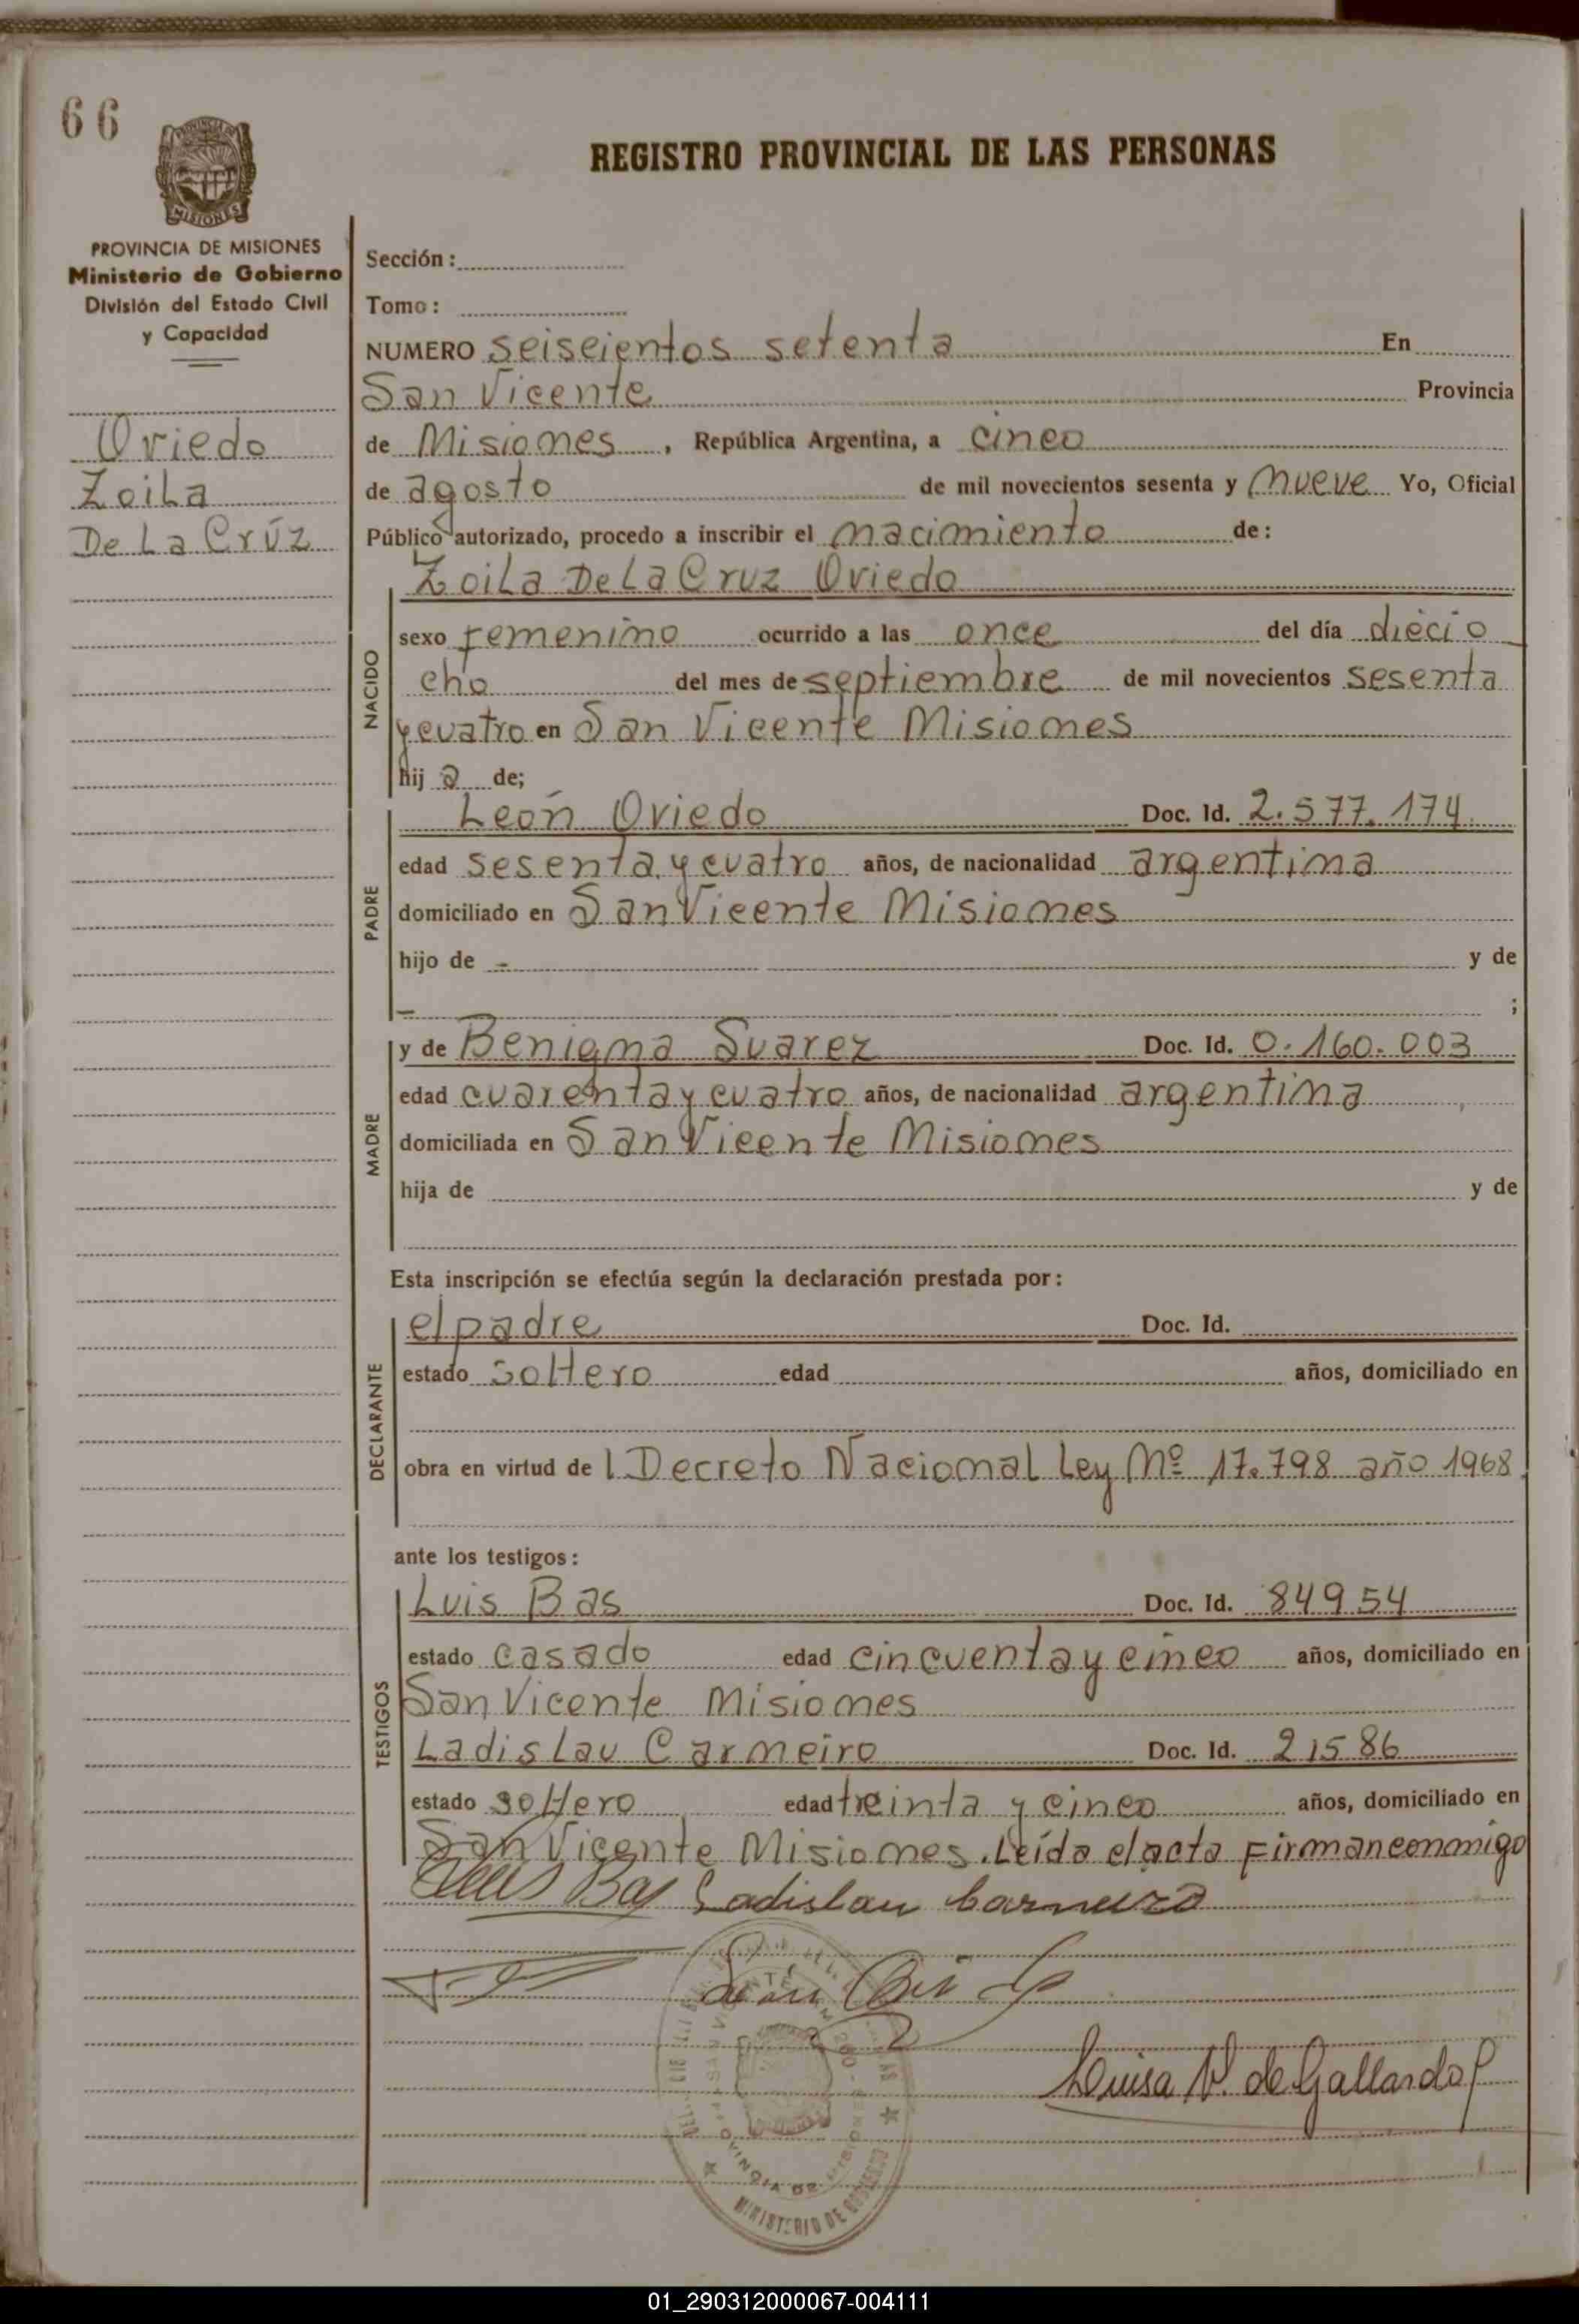 66
MISIONES
PROVINCIA DE MISIONES
Ministerio de Gobierno
División del Estado Civil
y Capacidad
Oviedo
Zoila
De La Crúz
REGISTRO PROVINCIAL DE LAS PERSONAS
Sección:
Tomo:
NUMERO seiscientos setenta En
San Vicente Provincia
de Misiones, República Argentina, a cinco
de agosto de mil novecientos sesenta y nueve Yo, Oficial
Público autorizado, procedo a inscribir el nacimiento de:
NACIDO
Zoila De La Cruz Oviedo
sexo femenino ocurrido a las once del día diecio
cho del mes de septiembre de mil novecientos sesenta
y cuatro en San Vicente Misiones
hij a de;
PADRE
León Oviedo Doc. Id. 2.577.174
edad sesenta y cuatro años, de nacionalidad argentina
domiciliado en San Vicente Misiones
hijo de - y de
- ;
MADRE
y de Benigna Suarez Doc. Id. 0.160.003
edad cuarenta y cuatro años, de nacionalidad argentina
domiciliada en San Vicente Misiones
hija de y de
Esta inscripción se efectúa según la declaración prestada por:
DECLARANTE
el padre Doc. Id.
estado soltero edad años, domiciliado en
obra en virtud de l Decreto Nacional Ley Nº 17.798 año 1968
ante los testigos:
TESTIGOS
Luis Bas Doc. Id. 84954
estado casado edad cincuenta y cinco años, domiciliado en
San Vicente Misiones
Ladislau Carneiro Doc. Id. 21586
estado soltero edad treinta y cinco años, domiciliado en
San Vicente Misiones. Leída el acta firman conmigo
Luis Bas Ladislau Carneiro
León
Luisa V. de Gallardo
PROVINCIA DE MISIONES
MINISTERIO DE GOBIERNO
01_290312000067-004111